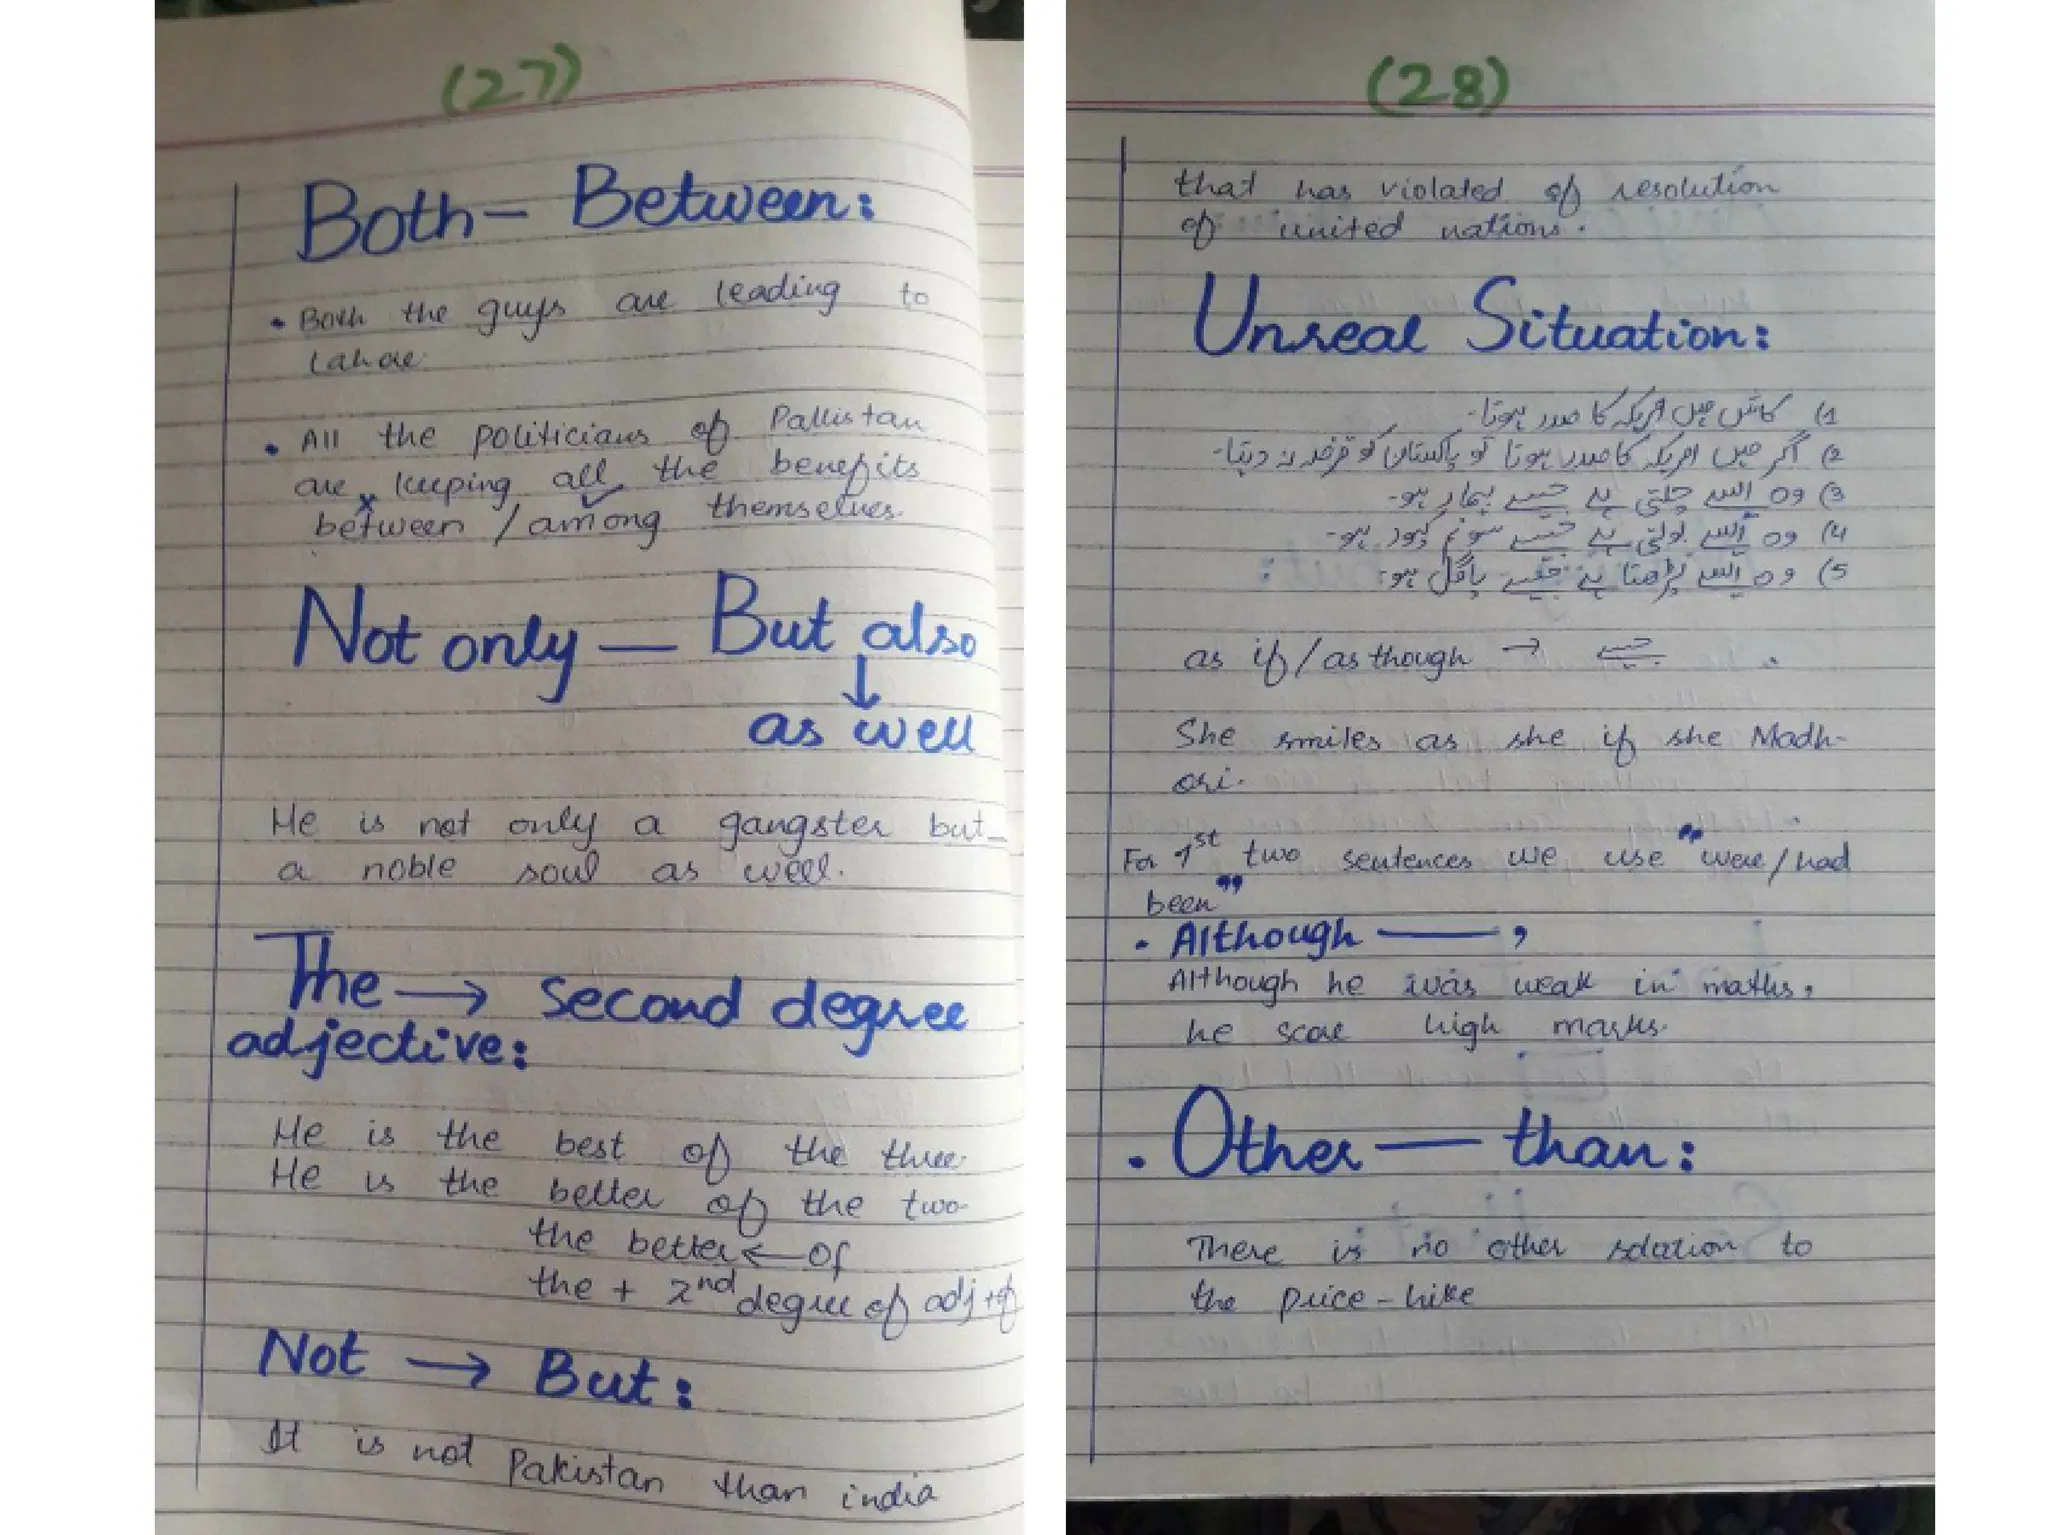 (27)
Both - Between:
• Both the guys are leading to
Lahore.
• All the politicians of Pakistan
are keeping all the benefits
between / among themselves.
Not only — But also
↓
as well
He is not only a gangster but
a noble soul as well.
The → second degree
adjective:
He is the best of the three.
He is the better of the two.
the better ← of
the + 2nd degree of adj + of
Not → But:
It is not Pakistan than india
(28)
that has violated of resolution
of united nations.
Unreal Situation:
1) کاش میں امریکہ کا صدر ہوتا۔
2) اگر میں امریکہ کا صدر ہوتا تو پاکستان کو قرضہ نہ دیتا۔
3) وہ ایسے چلتی ہے جیسے بیمار ہو۔
4) وہ ایسے بولتی ہے جیسے ہو۔
5) وہ ایسے پڑھتا ہے جیسے پاگل ہو۔
as if / as though → جیسے
She smiles as she if she Madh-
ori.
For 1st two sentences we use "were / had
been"
• Although ———,
Although he was weak in maths,
he score high marks.
• Other — than:
There is no other solution to
the price-hike